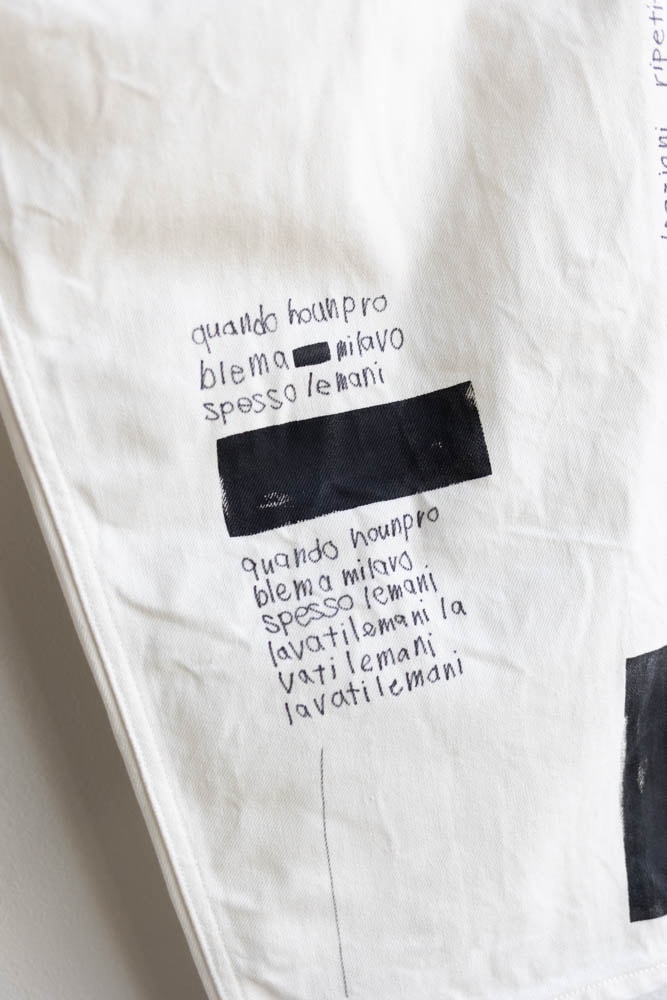 quando hounpro
blema milavo
spesso lemani
quando hounpro
blema milavo
spesso lemani
lavatilemani la
vati lemani
lavatilemani
ripeti